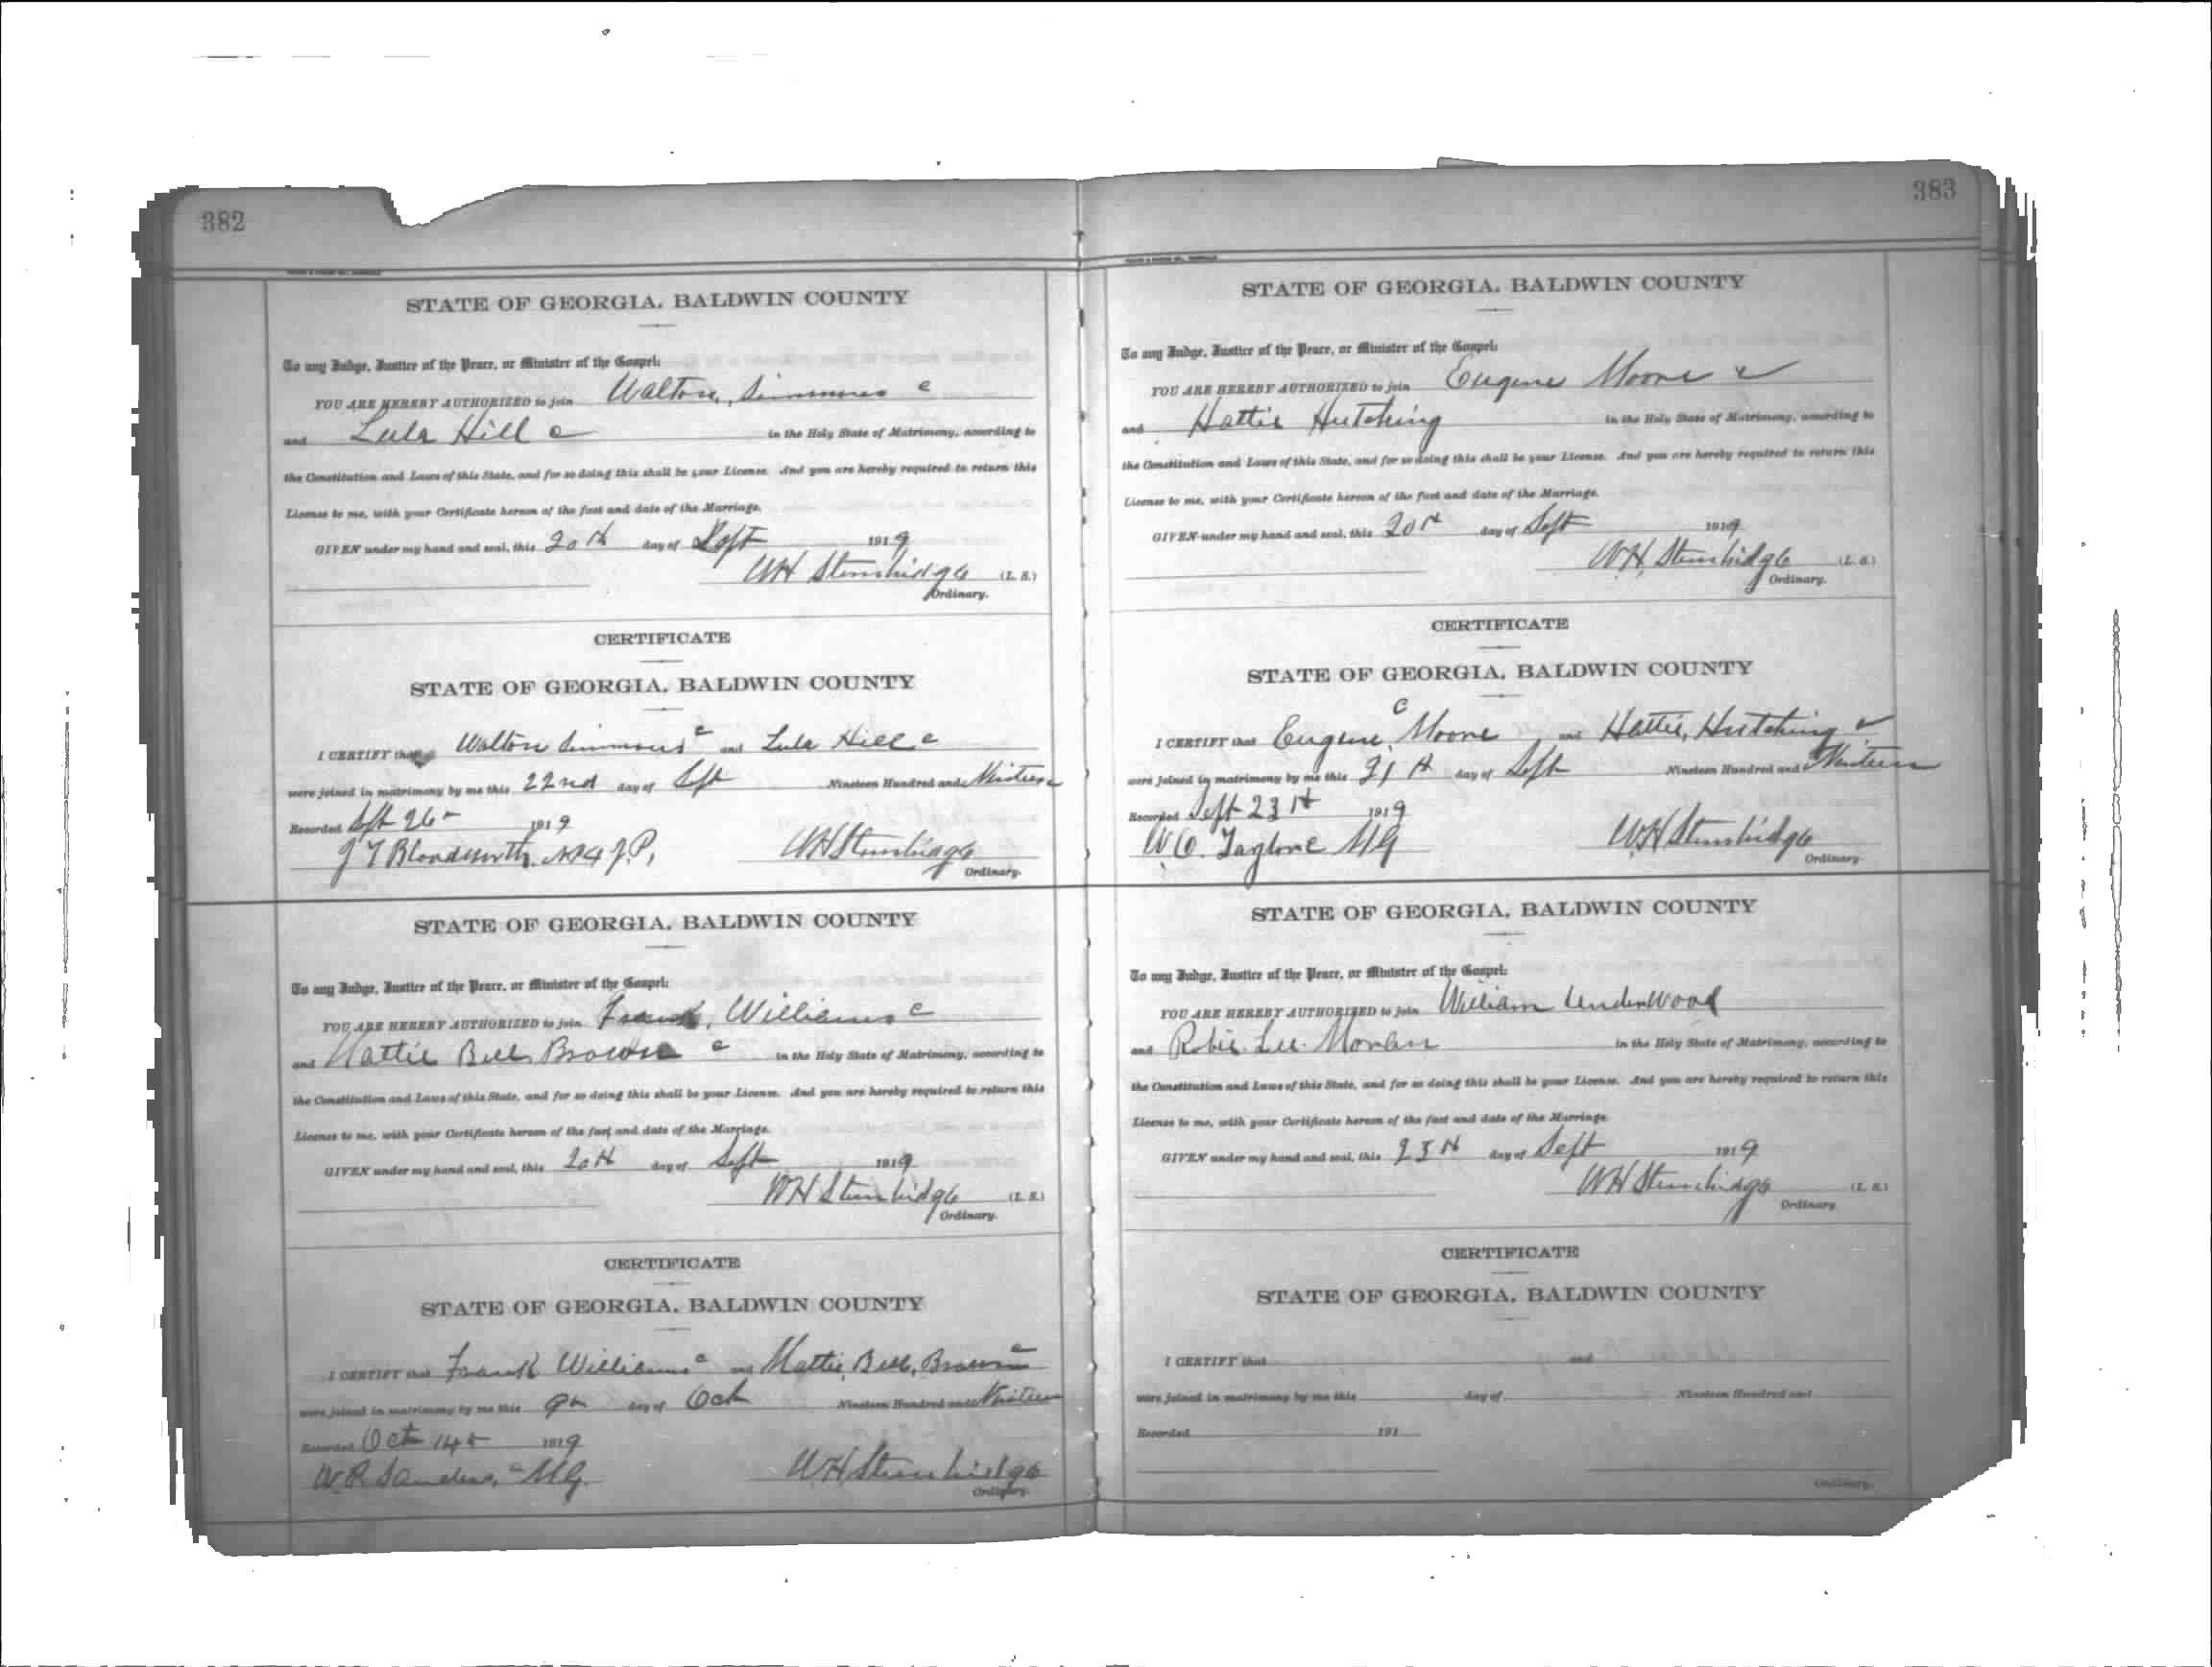 382
STATE OF GEORGIA, BALDWIN COUNTY
To any Judge, Justice of the Peace, or Minister of the Gospel:
YOU ARE HEREBY AUTHORIZED to join Walton, Simmons c
and Lula Hill c in the Holy State of Matrimony, according to
the Constitution and Laws of this State, and for so doing this shall be your License. And you are hereby required to return this
License to me, with your Certificate hereon of the fact and date of the Marriage.
GIVEN under my hand and seal, this 20th day of Sept 1919
WH Stembridge (L. S.)
Ordinary.
CERTIFICATE
STATE OF GEORGIA, BALDWIN COUNTY
I CERTIFY that Walton Simmons c and Lula Hill c
were joined in matrimony by me this 22nd day of Sept Nineteen Hundred and Nineteen
Recorded Sept 26 1919
J T Bloodworth J.P. WH Stembridge
Ordinary.
STATE OF GEORGIA, BALDWIN COUNTY
To any Judge, Justice of the Peace, or Minister of the Gospel:
YOU ARE HEREBY AUTHORIZED to join Frank, Williams c
and Mattie Bell Brown c in the Holy State of Matrimony, according to
the Constitution and Laws of this State, and for so doing this shall be your License. And you are hereby required to return this
License to me, with your Certificate hereon of the fact and date of the Marriage.
GIVEN under my hand and seal, this 20th day of Sept 1919
WH Stembridge (L. S.)
Ordinary.
CERTIFICATE
STATE OF GEORGIA, BALDWIN COUNTY
I CERTIFY that Frank Williams c and Mattie, Bell, Brown c
were joined in matrimony by me this day of Oct Nineteen Hundred and Nineteen
Recorded Oct 14 1919
W. R. Sanders, c MG. WH Stembridge
Ordinary.
383
STATE OF GEORGIA, BALDWIN COUNTY
To any Judge, Justice of the Peace, or Minister of the Gospel:
YOU ARE HEREBY AUTHORIZED to join Eugene Moore c
and Hattie Hutching in the Holy State of Matrimony, according to
the Constitution and Laws of this State, and for so doing this shall be your License. And you are hereby required to return this
License to me, with your Certificate hereon of the fact and date of the Marriage.
GIVEN under my hand and seal, this 20th day of Sept 1919
W.H. Stembridge (L. S.)
Ordinary.
CERTIFICATE
STATE OF GEORGIA, BALDWIN COUNTY
I CERTIFY that Eugene, Moore c and Hattie, Hutching c
were joined in matrimony by me this 21st day of Sept Nineteen Hundred and Nineteen
Recorded Sept 23 1919
W. O. MG WH Stembridge
Ordinary.
STATE OF GEORGIA, BALDWIN COUNTY
To any Judge, Justice of the Peace, or Minister of the Gospel:
YOU ARE HEREBY AUTHORIZED to join William Underwood
and Lee in the Holy State of Matrimony, according to
the Constitution and Laws of this State, and for so doing this shall be your License. And you are hereby required to return this
License to me, with your Certificate hereon of the fact and date of the Marriage.
GIVEN under my hand and seal, this day of Sept 1919
WH Stembridge (L. S.)
Ordinary.
CERTIFICATE
STATE OF GEORGIA, BALDWIN COUNTY
I CERTIFY that and
were joined in matrimony by me this day of Nineteen Hundred and
Recorded 191
Ordinary.